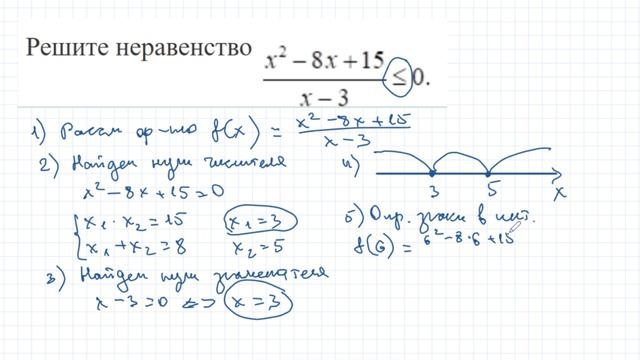 Решите неравенство (x² − 8x + 15)/(x − 3) ≤ 0.
1) Рассм ф-ию f(x) = (x² − 8x + 15)/(x − 3)
2) Найдем нули числителя
x² − 8x + 15 = 0
x₁ · x₂ = 15 x₁ = 3
x₁ + x₂ = 8 x₂ = 5
3) Найдем нули знаменателя
x − 3 = 0 <=> x = 3
4)
3 5 x
5) Опр. знаки в инт.
f(6) = 6² − 8·6 + 15